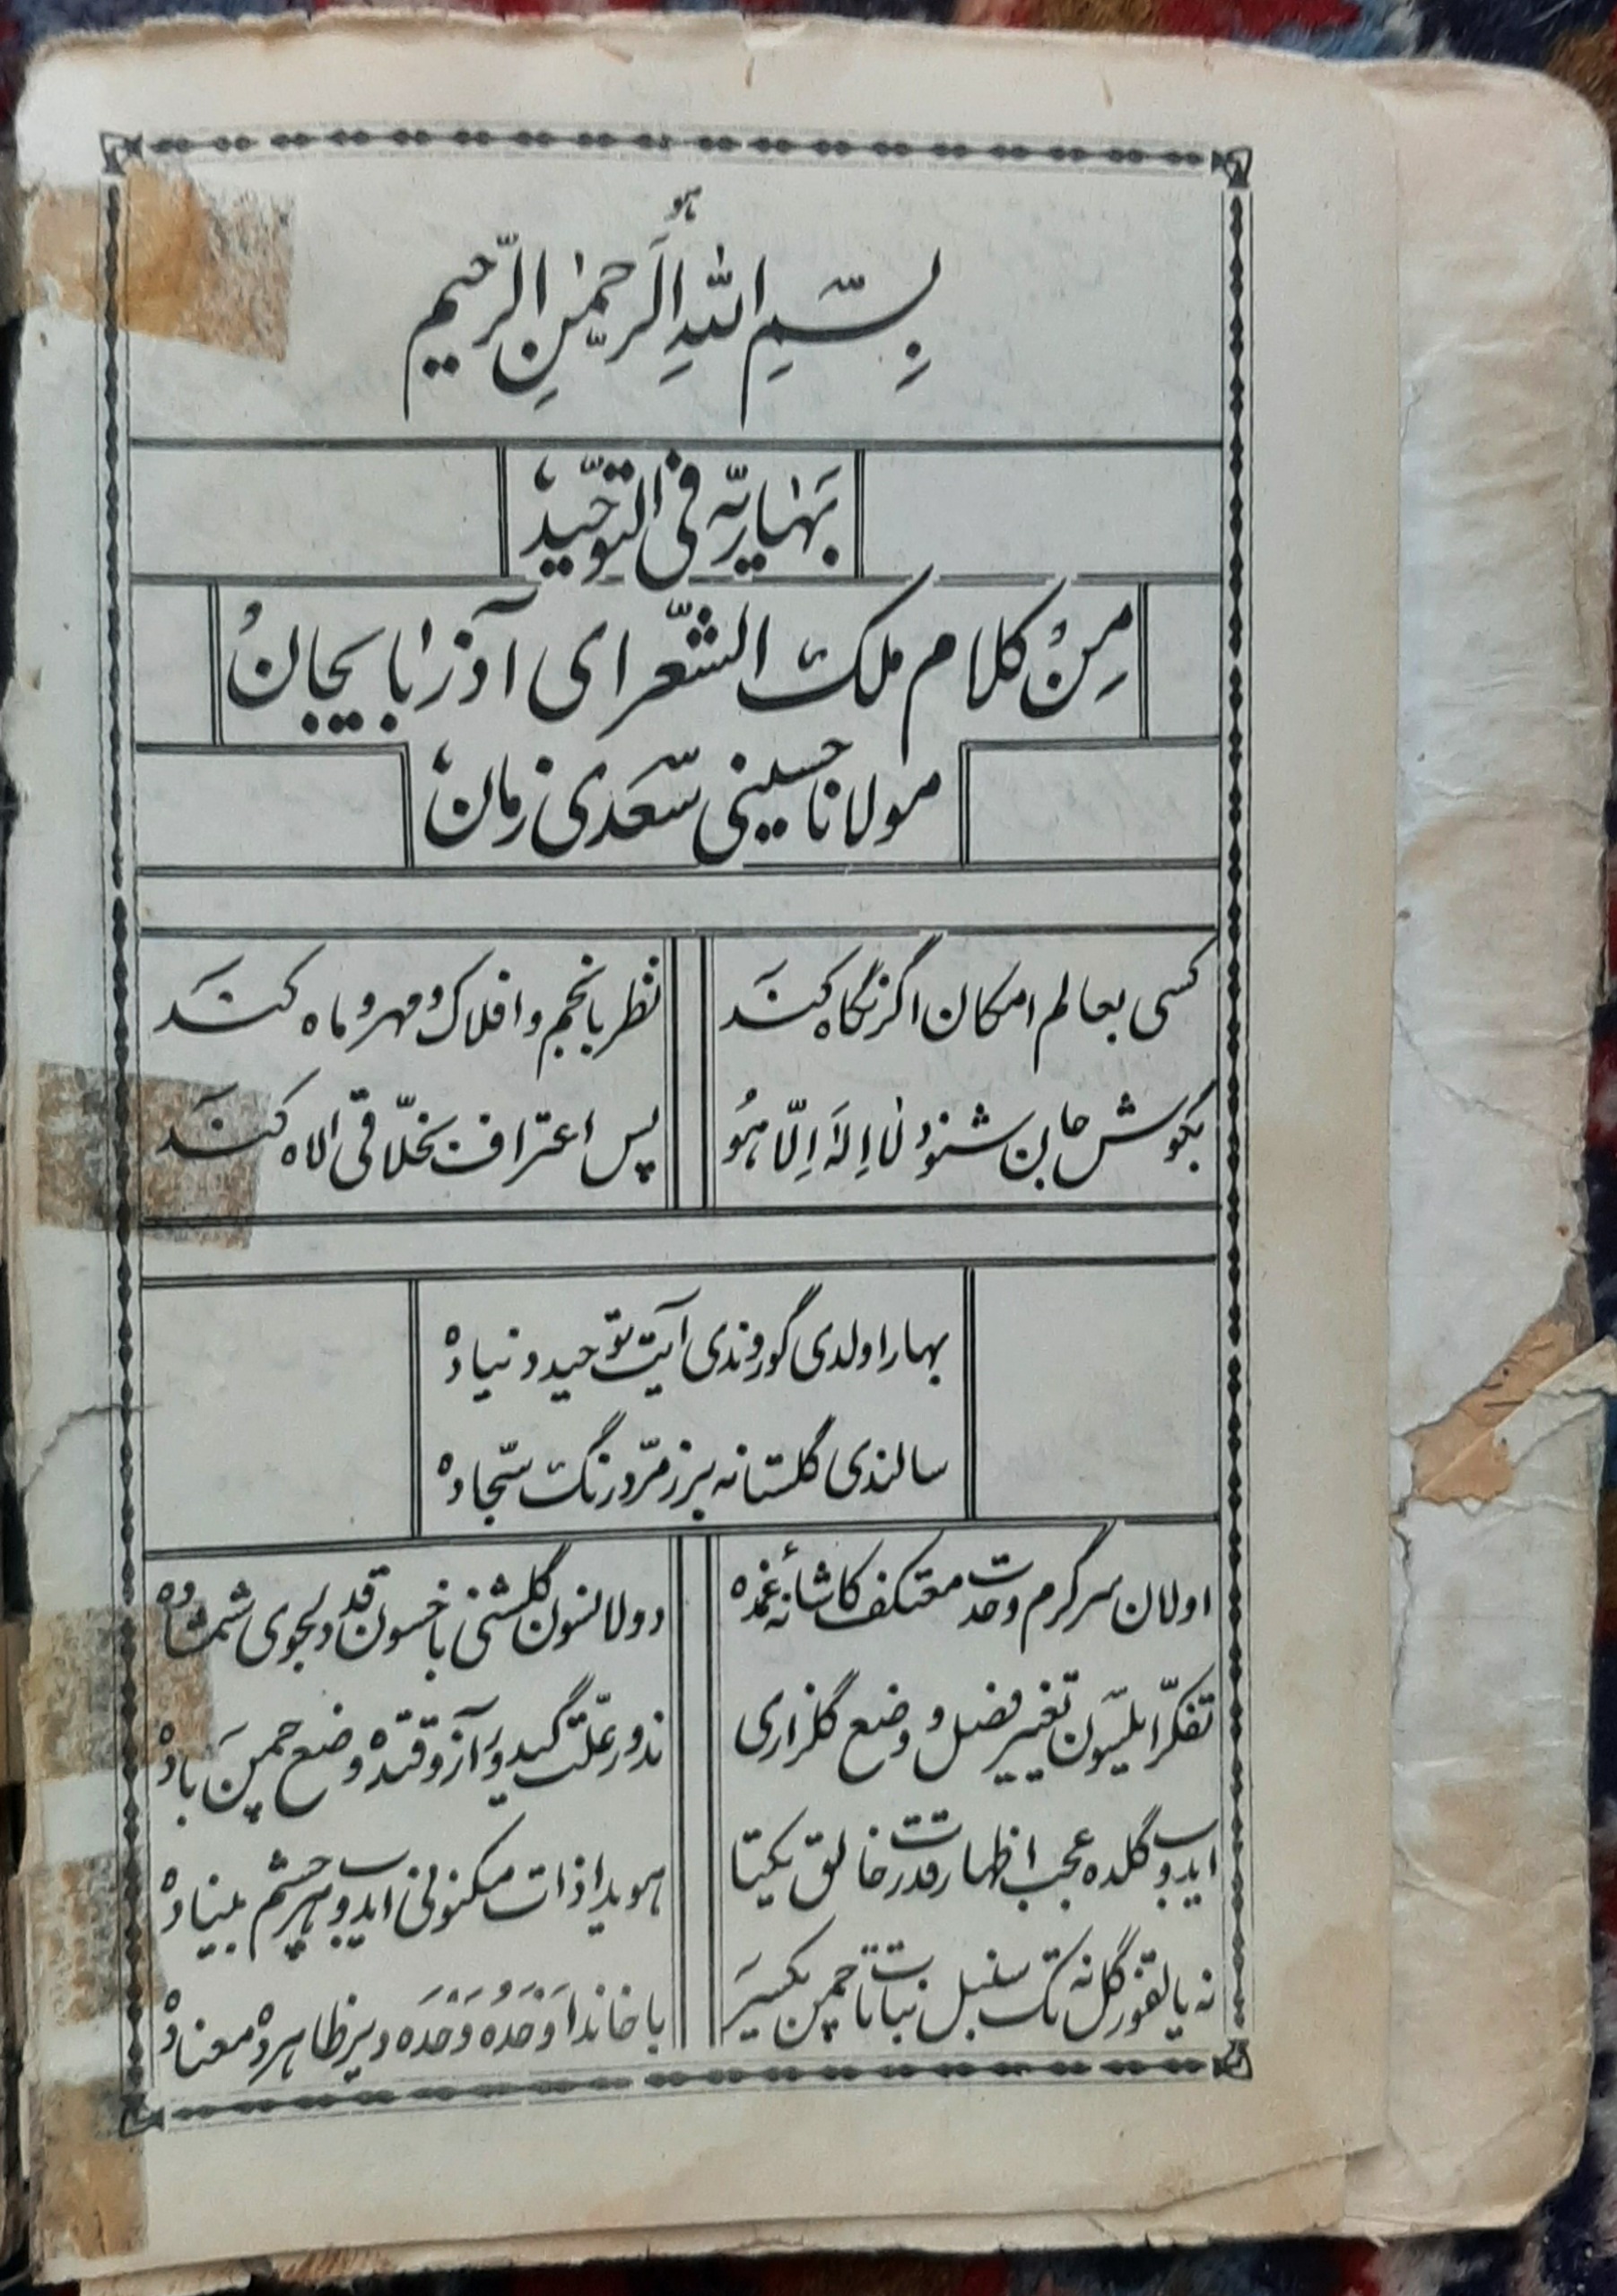 هو
بِسْمِ اللهِ الرَّحْمٰنِ الرَّحیمِ
بَهاریّه فی التّوحید
مِنْ کلام ملک الشّعرای آذرٰبایجانْ
مولانا حسینی سَعَدی زمان
کسی بعالم امکان اگر نگاه کنَد
نظر بانجم و افلاک و مهر و ماه کنَد
بگوش جان شنود لٰا اِلهَ اِلّا هُو
پس اعتراف بخلّاقی الاه کنَد
بهار اولدی گوروندی آیت توحید دنیادْه
سالندی گلستانه بیر زمرّد رنگ سجّادْه
اولان سرگرم وحدت معتکف کاشانهٔ غمده
دولانسون گلشنی باخسون قد دلجوی شمشادْه
تفکّر ایلیسون تغییر فصل و وضع گلزاری
ندور علّت گیدور آز وقتده وضع چمن بادْه
ایدوب گلده عجب اظهار قدرت خالق یکیتا
هویدا ذات مکنونی ایدوب هر چشم بینادْه
نه یالقوز گل نه تک سنبل نباتات چمن یکسَر
باخاندا وَحْدَهُ وَحْدَه دیر ظاهردْه معنادْه